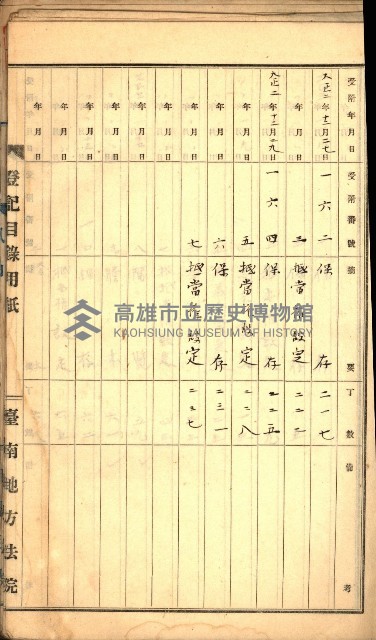 受附年月日 受附番號 摘要 丁數 備考
大正二年十二月二七日 一六二 保存 二一七
年月日 三 抵當權設定 二二二
大正二年十二月二九日 一六四 保存 二二五
年月日 五 抵當權設定 二二八
年月日 六 保存 二三一
年月日 七 抵當權設定 二三七
年月日
年月日
年月日
年月日
年月日
登記目錄用紙
臺南地方法院
高雄市立歷史博物館
KAOHSIUNG MUSEUM OF HISTORY